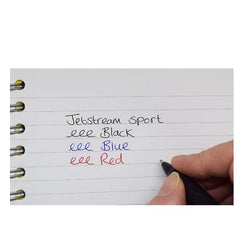 Jetstream sport
eee Black
eee Blue
eee Red